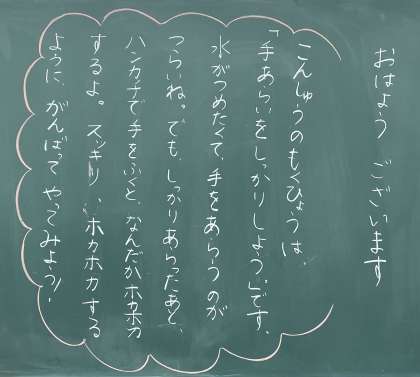 おはよう ございます
こんしゅうのもくひょうは、
「手あらいをしっかりしよう。」です。
水がつめたくて、手をあらうのが
つらいね。でも、しっかりあらったあと、
ハンカチで手をふくと、なんだかホカホカ
するよ。スッキリ、ホカホカする
ように、がんばってやってみよう!